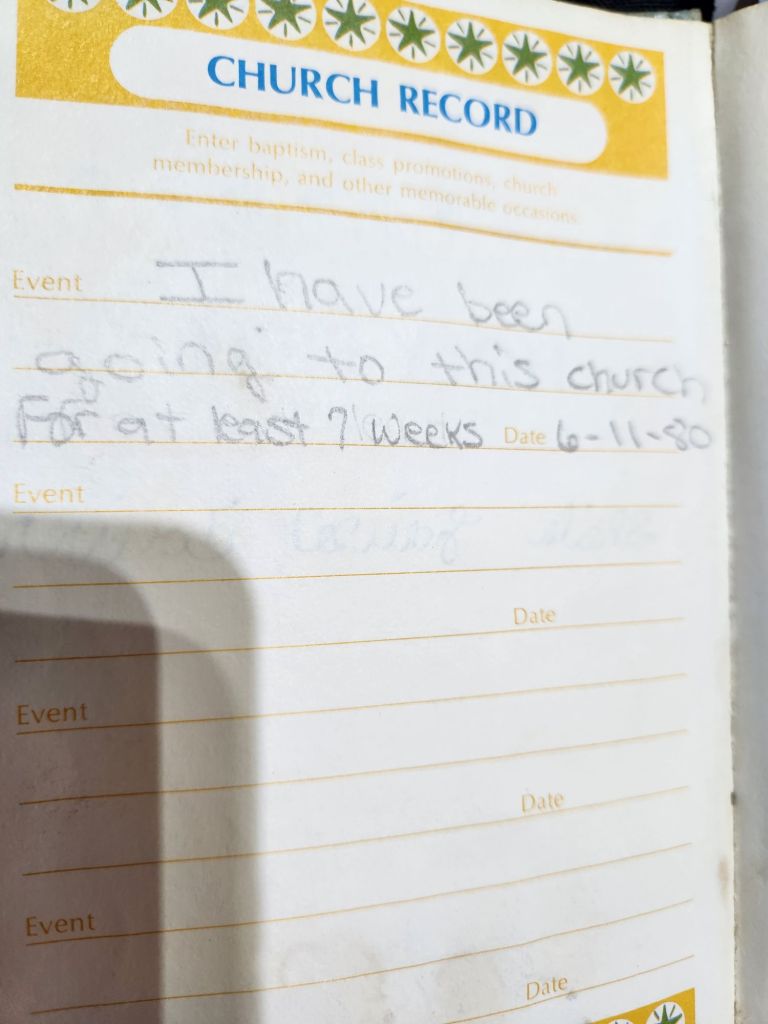 CHURCH RECORD
Enter baptism, class promotions, church
membership, and other memorable occasions
Event I have been
going to this church
For at least 7 weeks Date 6-11-80
Event
Date
Event
Date
Event
Date